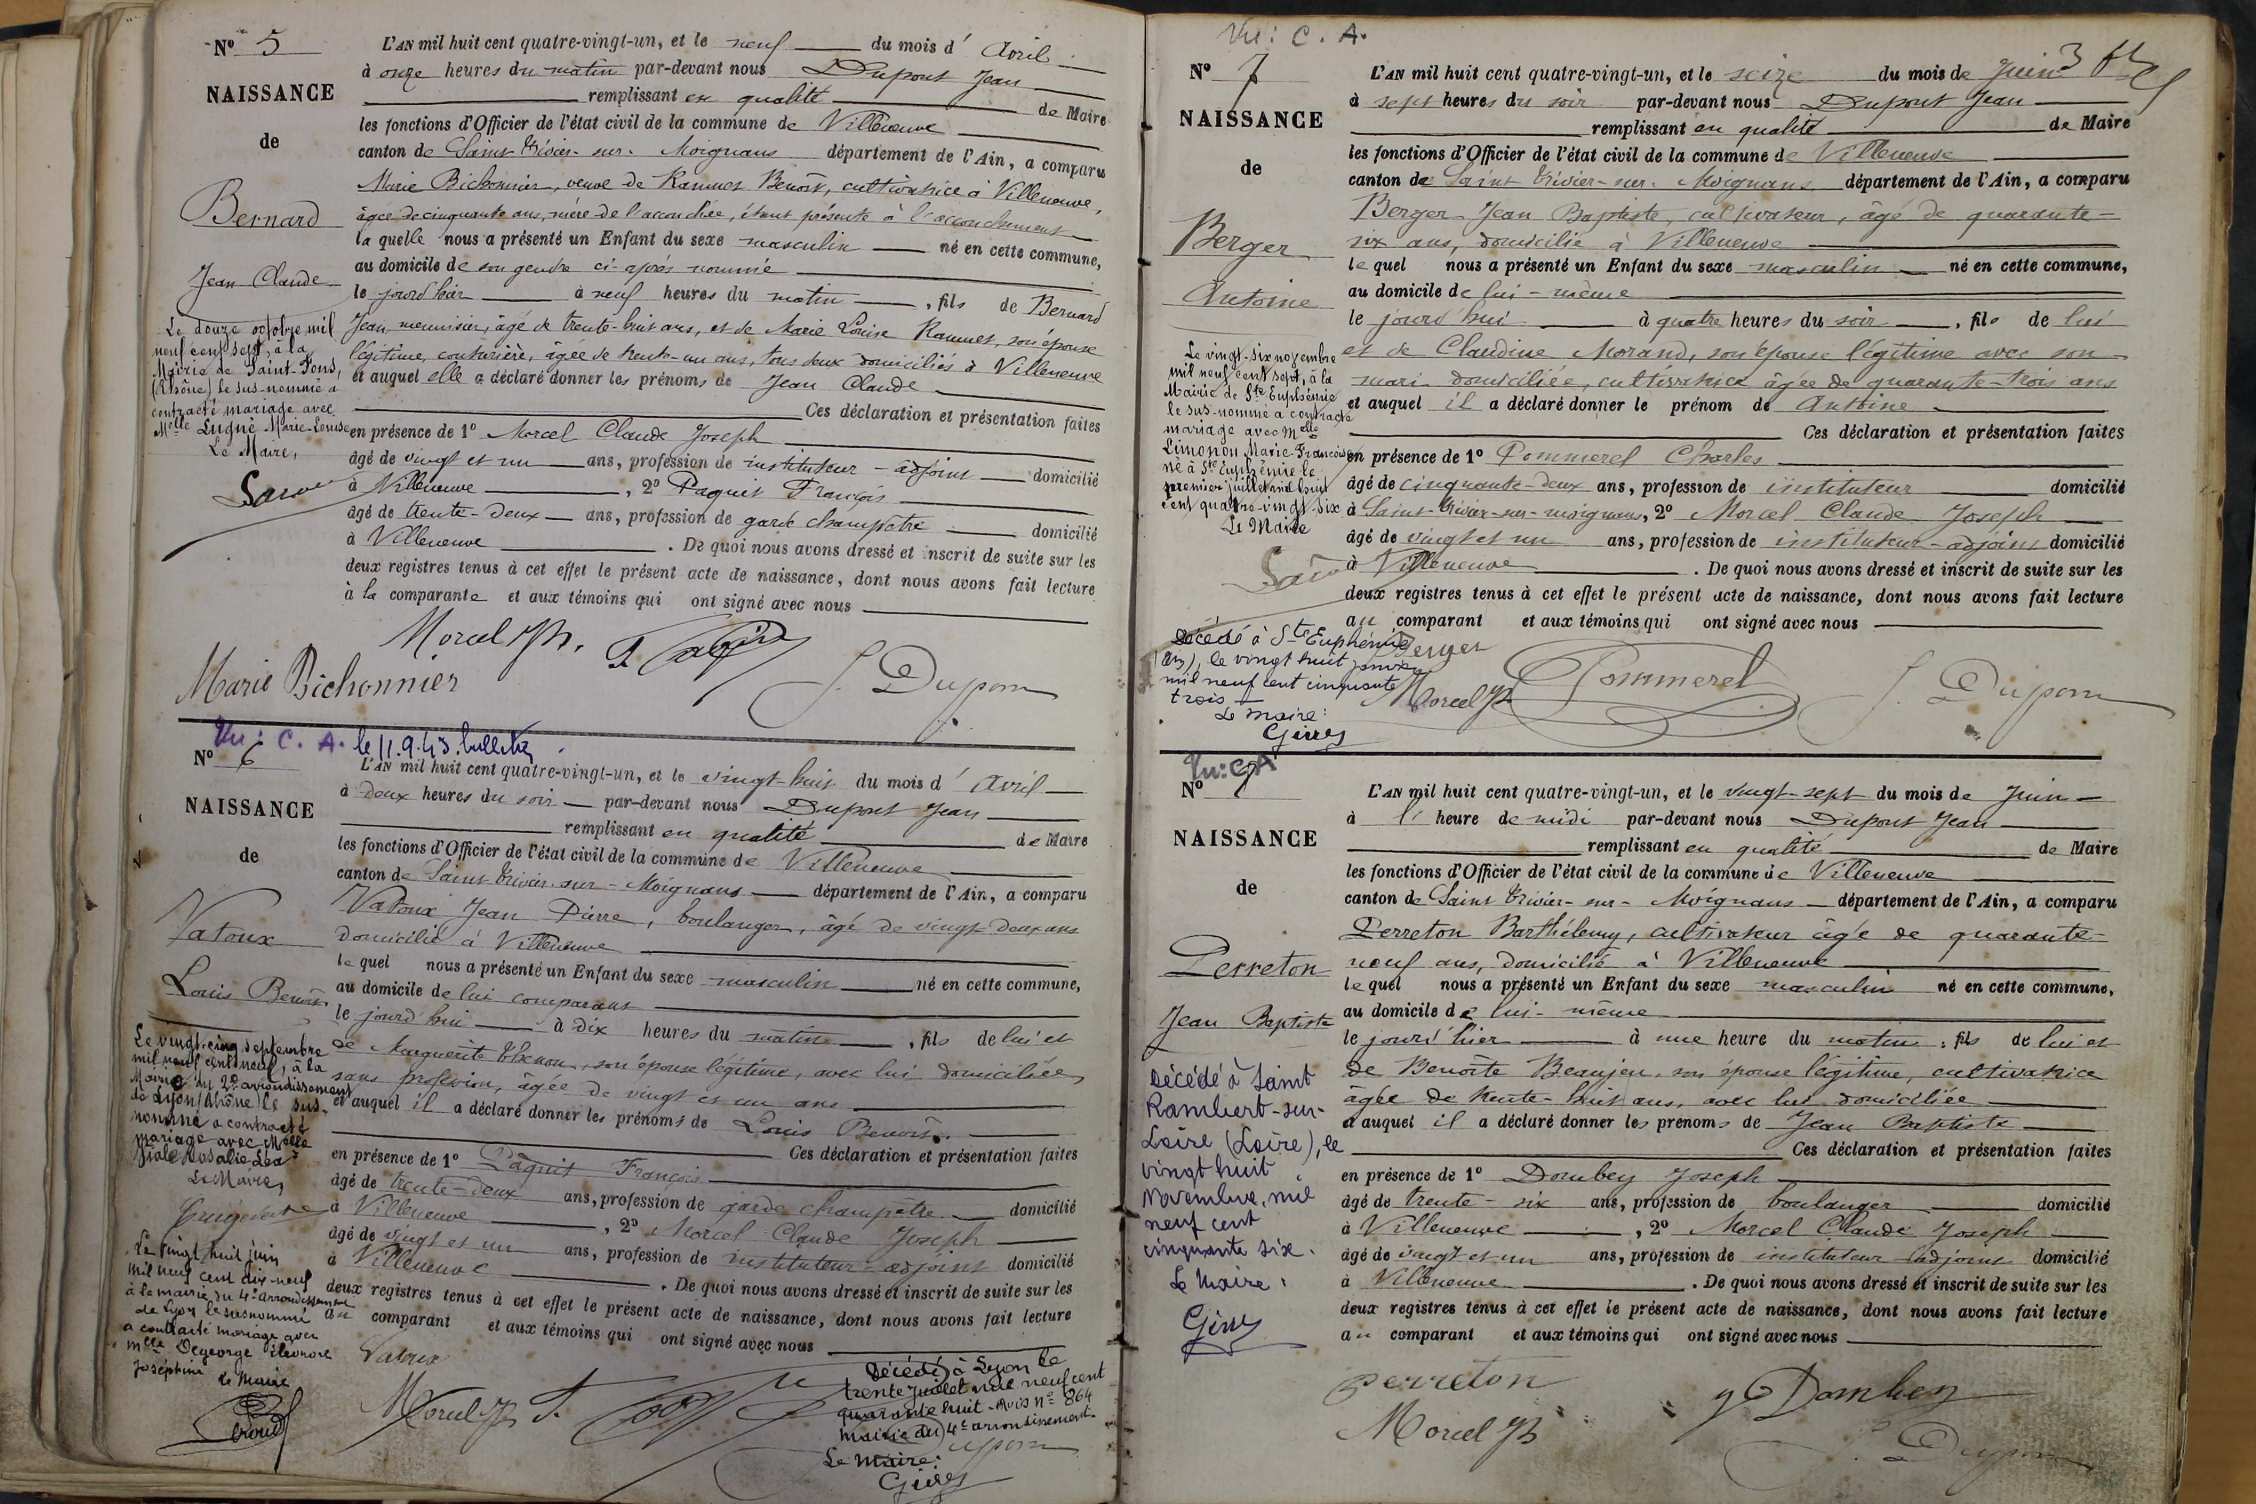 N° 5
NAISSANCE
de
Bernard
Jean Claude
Le douze octobre mil
neuf cent sept, à la
Mairie de Saint-Fons,
(Rhône) le sus-nommé a
contracté mariage avec
Melle Lugné Marie-Louise
Le Maire,
L'AN mil huit cent quatre-vingt-un, et le neuf du mois d' Avril
à onze heures du matin par-devant nous Dupont Jean
remplissant en qualité de Maire
les fonctions d'Officier de l'état civil de la commune de Villeneuve
canton de Saint Trivier-sur-Moignans département de l'Ain, a comparu
Marie Bichonnier, veuve de Rammet Benoît, cultivatrice à Villeneuve,
âgée de cinquante ans, mère de l'accouchée, étant présente à l'accouchement
la quelle nous a présenté un Enfant du sexe masculin né en cette commune,
au domicile de son gendre ci-après nommé
le jourd'hier à neuf heures du matin, fils de Bernard
Jean, menuisier, âgé de trente-huit ans, et de Marie Louise Rammet, son épouse
légitime, couturière, âgée de trente-un ans, tous deux domiciliés à Villeneuve
et auquel elle a déclaré donner les prénoms de Jean Claude
Ces déclaration et présentation faites
en présence de 1° Morcel Claude Joseph
âgé de vingt et un ans, profession de instituteur-adjoint domicilié
à Villeneuve, 2° Paquit François
âgé de trente-deux ans, profession de garde champêtre domicilié
à Villeneuve. De quoi nous avons dressé et inscrit de suite sur les
deux registres tenus à cet effet le présent acte de naissance, dont nous avons fait lecture
à la comparante et aux témoins qui ont signé avec nous
Morcel
Marie Bichonnier
J. Dupont
Vu: C. A. le 11.9.43.
N° 6
NAISSANCE
de
Vatoux
Louis Benoît
Le vingt-cinq septembre
mil neuf cent neuf, à la
Mairie du 2e arrondissement
de Lyon (Rhône) le sus-
nommé a contracté
mariage avec Melle
Rosalie Léa
Le Maire,
Le vingt huit juin
mil neuf cent dix-neuf
à la mairie du 4e arrondissement
de Lyon le susnommé
a contracté mariage avec
Melle Degeorge Eléonore
Joséphine Le Maire
L'AN mil huit cent quatre-vingt-un, et le vingt-huit du mois d' Avril
à deux heures du soir par-devant nous Dupont Jean
remplissant en qualité de Maire
les fonctions d'Officier de l'état civil de la commune de Villeneuve
canton de Saint Trivier-sur-Moignans département de l'Ain, a comparu
Vatoux Jean Pierre, boulanger, âgé de vingt-deux ans
domicilié à Villeneuve
le quel nous a présenté un Enfant du sexe masculin né en cette commune,
au domicile de lui comparant
le jourd'hui à dix heures du matin, fils de lui et
de Marguerite Thenon, son épouse légitime, avec lui domiciliée,
sans profession, âgée de vingt et un ans
et auquel il a déclaré donner les prénoms de Louis Benoît.
Ces déclaration et présentation faites
en présence de 1° Paquit François
âgé de trente-deux ans, profession de garde champêtre domicilié
à Villeneuve, 2° Morcel Claude Joseph
âgé de vingt et un ans, profession de instituteur-adjoint domicilié
à Villeneuve. De quoi nous avons dressé et inscrit de suite sur les
deux registres tenus à cet effet le présent acte de naissance, dont nous avons fait lecture
au comparant et aux témoins qui ont signé avec nous
Vatoux
Morcel
Décédé à Lyon le
trente juillet mil neuf cent
quarante huit - Avis n° 864
mairie du 4e arrondissement.
Le maire:
Vu: C. A.
N° 7
NAISSANCE
de
Berger
Antoine
Le vingt-six novembre
mil neuf cent sept, à la
Mairie de Ste Euphémie
le sus-nommé a contracté
mariage avec Melle
Limonon Marie-Françoise
né à Ste Euphémie le
premier juillet mil huit
cent quatre-vingt-six
Le Maire
Décédé à Ste Euphémie
(Ain), le vingt huit janvier
mil neuf cent cinquante
trois
Le maire:
L'AN mil huit cent quatre-vingt-un, et le seize du mois de Juin
à sept heures du soir par-devant nous Dupont Jean
remplissant en qualité de Maire
les fonctions d'Officier de l'état civil de la commune de Villeneuve
canton de Saint Trivier-sur-Moignans département de l'Ain, a comparu
Berger Jean Baptiste, cultivateur, âgé de quarante-
six ans, domicilié à Villeneuve
le quel nous a présenté un Enfant du sexe masculin né en cette commune,
au domicile de lui-même
le jourd'hui à quatre heures du soir, fils de lui
et de Claudine Morand, son épouse légitime avec son
mari domiciliée, cultivatrice âgée de quarante-trois ans
et auquel il a déclaré donner le prénom de Antoine
Ces déclaration et présentation faites
en présence de 1° Pommerel Charles
âgé de cinquante-deux ans, profession de instituteur domicilié
à Saint-Trivier-sur-Moignans, 2° Morcel Claude Joseph
âgé de vingt et un ans, profession de instituteur-adjoint domicilié
à Villeneuve. De quoi nous avons dressé et inscrit de suite sur les
deux registres tenus à cet effet le présent acte de naissance, dont nous avons fait lecture
au comparant et aux témoins qui ont signé avec nous
Berger
Morcel
Pommerel
J. Dupont
Vu: C A
N°
NAISSANCE
de
Perreton
Jean Baptiste
Décédé à Saint
Rambert-sur-
Loire (Loire), le
vingt huit
Novembre, mil
neuf cent
cinquante six.
Le Maire:
L'AN mil huit cent quatre-vingt-un, et le vingt-sept du mois de Juin
à l' heure de midi par-devant nous Dupont Jean
remplissant en qualité de Maire
les fonctions d'Officier de l'état civil de la commune de Villeneuve
canton de Saint Trivier-sur-Moignans département de l'Ain, a comparu
Perreton Barthélemy, cultivateur âgé de quarante-
neuf ans, domicilié à Villeneuve
le quel nous a présenté un Enfant du sexe masculin né en cette commune,
au domicile de lui-même
le jourd'hier à une heure du matin, fils de lui et
de Benoîte Beaujeu, son épouse légitime, cultivatrice
âgée de trente-huit ans, avec lui domiciliée
et auquel il a déclaré donner les prénoms de Jean Baptiste
Ces déclaration et présentation faites
en présence de 1° Dombey Joseph
âgé de trente-six ans, profession de boulanger domicilié
à Villeneuve, 2° Morcel Claude Joseph
âgé de vingt et un ans, profession de instituteur adjoint domicilié
à Villeneuve. De quoi nous avons dressé et inscrit de suite sur les
deux registres tenus à cet effet le présent acte de naissance, dont nous avons fait lecture
au comparant et aux témoins qui ont signé avec nous
Perreton
J Dombey
Morcel
J. Dupont